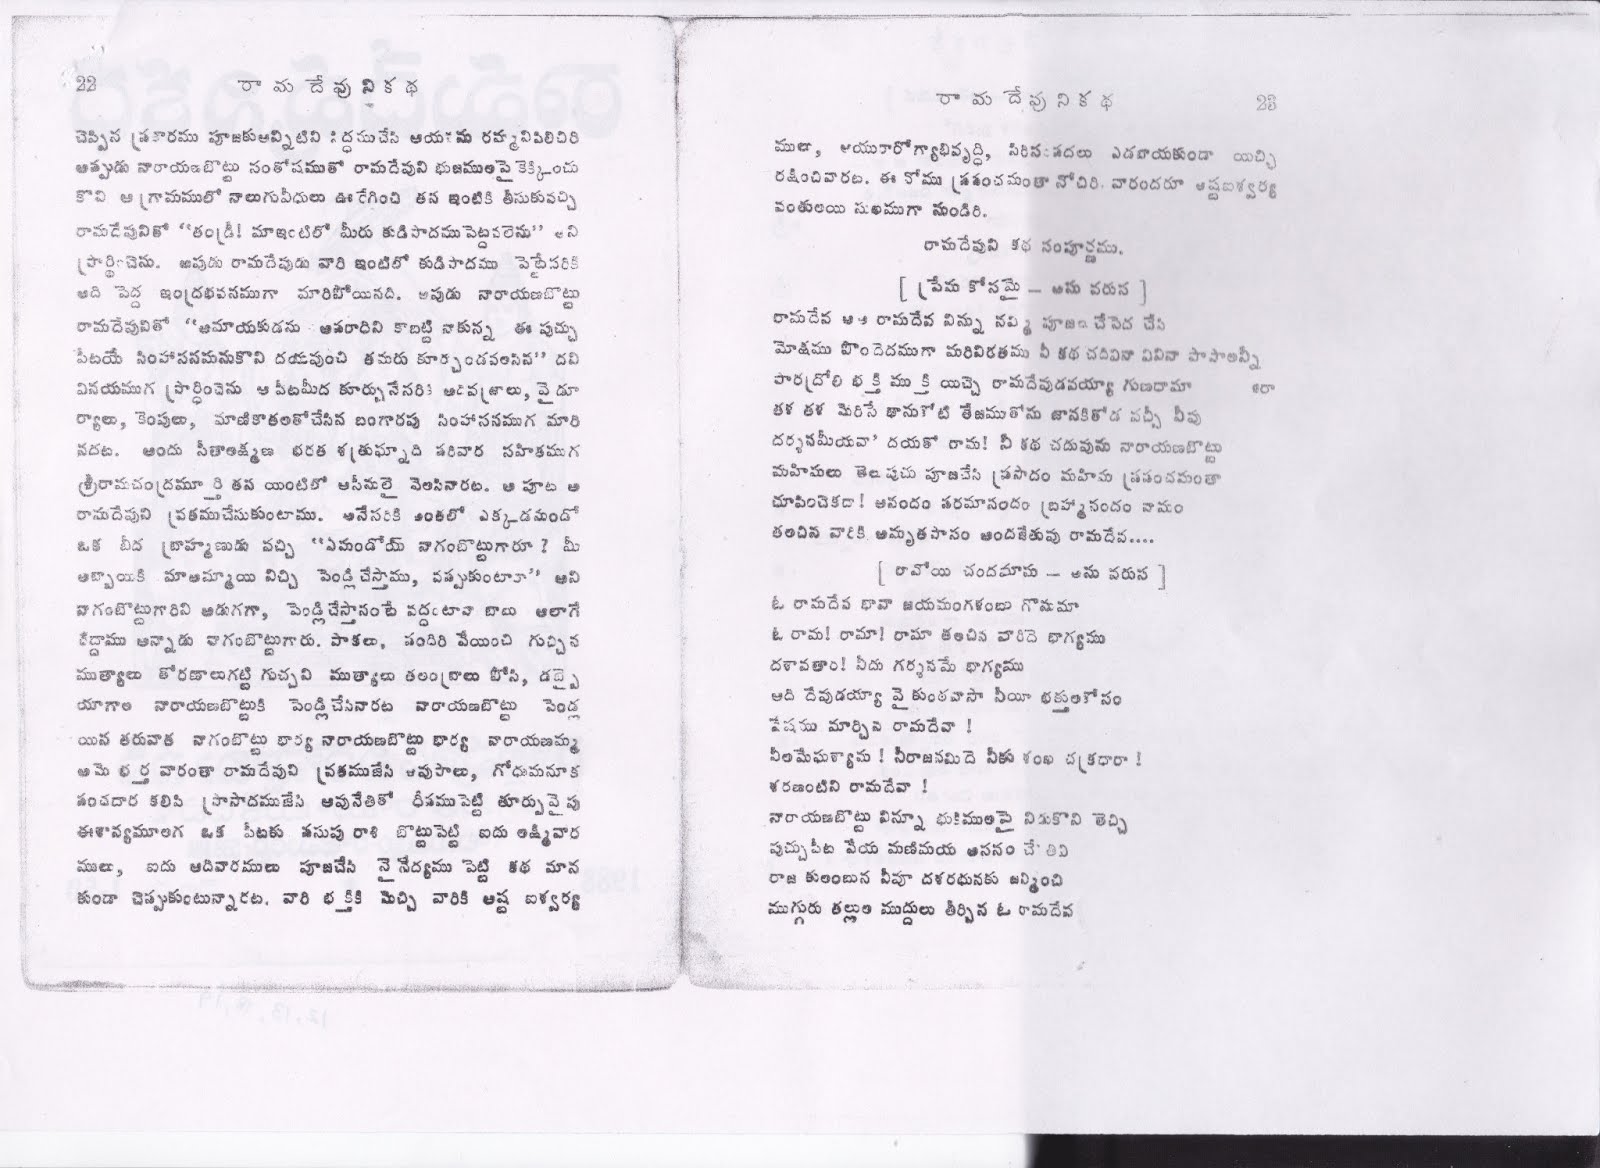 22 రామదేవునికథ
చెప్పిన ప్రకారము పూజకుఅన్నిటిని సిద్ధముచేసి ఆయనను రమ్మనిపిలిచిరి
అప్పుడు నారాయణబొట్టు సంతోషముతో రామదేవుని భుజములపై కెక్కించు
కొని ఆ గ్రామములో నాలుగువీధులు ఊరేగించి తన ఇంటికి తీసుకువచ్చి
రామదేవునితో "తండ్రీ! మాఇంటిలో మీరు కుడిపాదముపెట్టవలెను" అని
ప్రార్థించెను. అపుడు రామదేవుడు వారి ఇంటిలో కుడిపాదము పెట్టేసరికి
అది పెద్ద ఇంద్రభవనముగా మారిపోయినది. అపుడు నారాయణబొట్టు
రామదేవునితో "అమాయకుడను అపరాధిని కాబట్టి నాకున్న ఈ పుచ్చు
పీటయే సింహాసనమనుకొని దయవుంచి తమరు కూర్చుండవలసిన" దని
వినయముగ ప్రార్ధించెను ఆ పీటమీద కూర్చునేసరికి అది వజ్రాలు, వైడూ
ర్యాలు, కెంపులు, మాణిక్యాలతోచేసిన బంగారపు సింహాసనముగ మారి
నదట. అందు సీతాలక్ష్మణ భరత శత్రుఘ్నాది పరివార సహితముగ
శ్రీరామచంద్రమూర్తి తన యింటిలో ఆసీనులై వెలసినారట. ఆ పూట ఆ
రామదేవుని వ్రతముచేసుకుంటాము. అనేసరికి అంతలో ఎక్కడనుండో
ఒక బీద బ్రాహ్మణుడు వచ్చి "ఏమండోయ్ నాగంబొట్టుగారూ? మీ
అబ్బాయికి మాఅమ్మాయి నిచ్చి పెండ్లిచేస్తాము, వప్పుకుంటారా" అని
నాగంబొట్టుగారిని అడుగగా, పెండ్లిచేస్తానంటే వద్దంటావా బాబు అలాగే
కీద్దాము అన్నాడు నాగంబొట్టుగారు. పాకలు, పందిరి వేయించి గుచ్చిన
ముత్యాలు తోరణాలుగట్టి గుచ్చని ముత్యాలు తలంబ్రాలు పోసి, డబ్బై
యాగాల నారాయణబొట్టుకి పెండ్లిచేసినారట నారాయణబొట్టు పెండ్ల
యిన తరువాత నాగంబొట్టు భార్య నారాయణబొట్టు భార్య నారాయణమ్మ
ఆమె భర్త వారంతా రామదేవుని వ్రతముజేసి ఆవుపాలు, గోధుమనూక
పంచదార కలిపి ప్రసాదముజేసి ఆవునేతితో దీపముపెట్టి తూర్పువైపు
ఈశాన్యమూలగ ఒక పీటకు పసుపు రాశి బొట్టుపెట్టి ఐదు లక్ష్మివార
ములు, ఐదు ఆదివారములు పూజచేసి నైవేద్యము పెట్టి కథ మాన
కుండా చెప్పుకుంటున్నారట. వారి భక్తికి మెచ్చి వారికి అష్ట ఐశ్వర్య
రామదేవునికథ 23
ములు, ఆయురారోగ్యాభివృద్ధి, సిరిసంపదలు ఎడబాయకుండా యిచ్చి
రక్షించినారట. ఈ నోము ప్రపంచమంతా నోచిరి. వారందరూ అష్టఐశ్వర్య
వంతులయి సుఖముగా నుండిరి.
రామదేవుని కథ సంపూర్ణము.
[ ప్రేమ కోసమై – అను వరుస ]
రామదేవ ఆ రామదేవ నిన్ను నమ్మి పూజలు చేసెద చేసి
మోక్షము పొందెదముగా మరివిరతము నీ కథ చదివినా వినినా పాపాలన్నీ
పారద్రోలి భక్తి ముక్తి యిచ్చె రామదేవుడవయ్యా గుణధామా
తళ తళ మెరిసే భానుకోటి తేజముతోను జానకితోడ వచ్చి నీవు
దర్శనమీయవా' దయతో రామ! నీ కథ చదువును నారాయణబొట్టు
మహిమలు తెలపుచు పూజచేసి ప్రసాదం మహిమ ప్రపంచమంతా
చూపించెకదా! ఆనందం పరమానందం బ్రహ్మానందం నామం
తలచిన వారికి అమృతపానం అందజేతువు రామదేవ....
[ రావోయి చందమామ – అను వరుస ]
ఓ రామదేవ భావా జయమంగళంబు గొనుమా
ఓ రామ! రామా! రామా తలచిన వారిదె భాగ్యము
దశావతాం! నీదు గర్శనమే భాగ్యము
ఆది దేవుడయ్యా వైకుంఠవాసా నీయీ భక్తులకోసం
వేషము మార్చిన రామదేవా !
నీలమేఘశ్యామ ! నీరాజనమిదె నీకు శంఖ చక్రధారా !
శరణంటిని రామదేవా !
నారాయణబొట్టు నిన్నూ భుజములపై నిడుకొని తెచ్చి
పుచ్చుపీట వేయ మణిమయ ఆసనం చేసితివి
రాజ కులంబున నీవూ దశరథునకు జన్మించి
ముగ్గురు తల్లుల ముద్దులు తీర్చిన ఓ రామదేవ